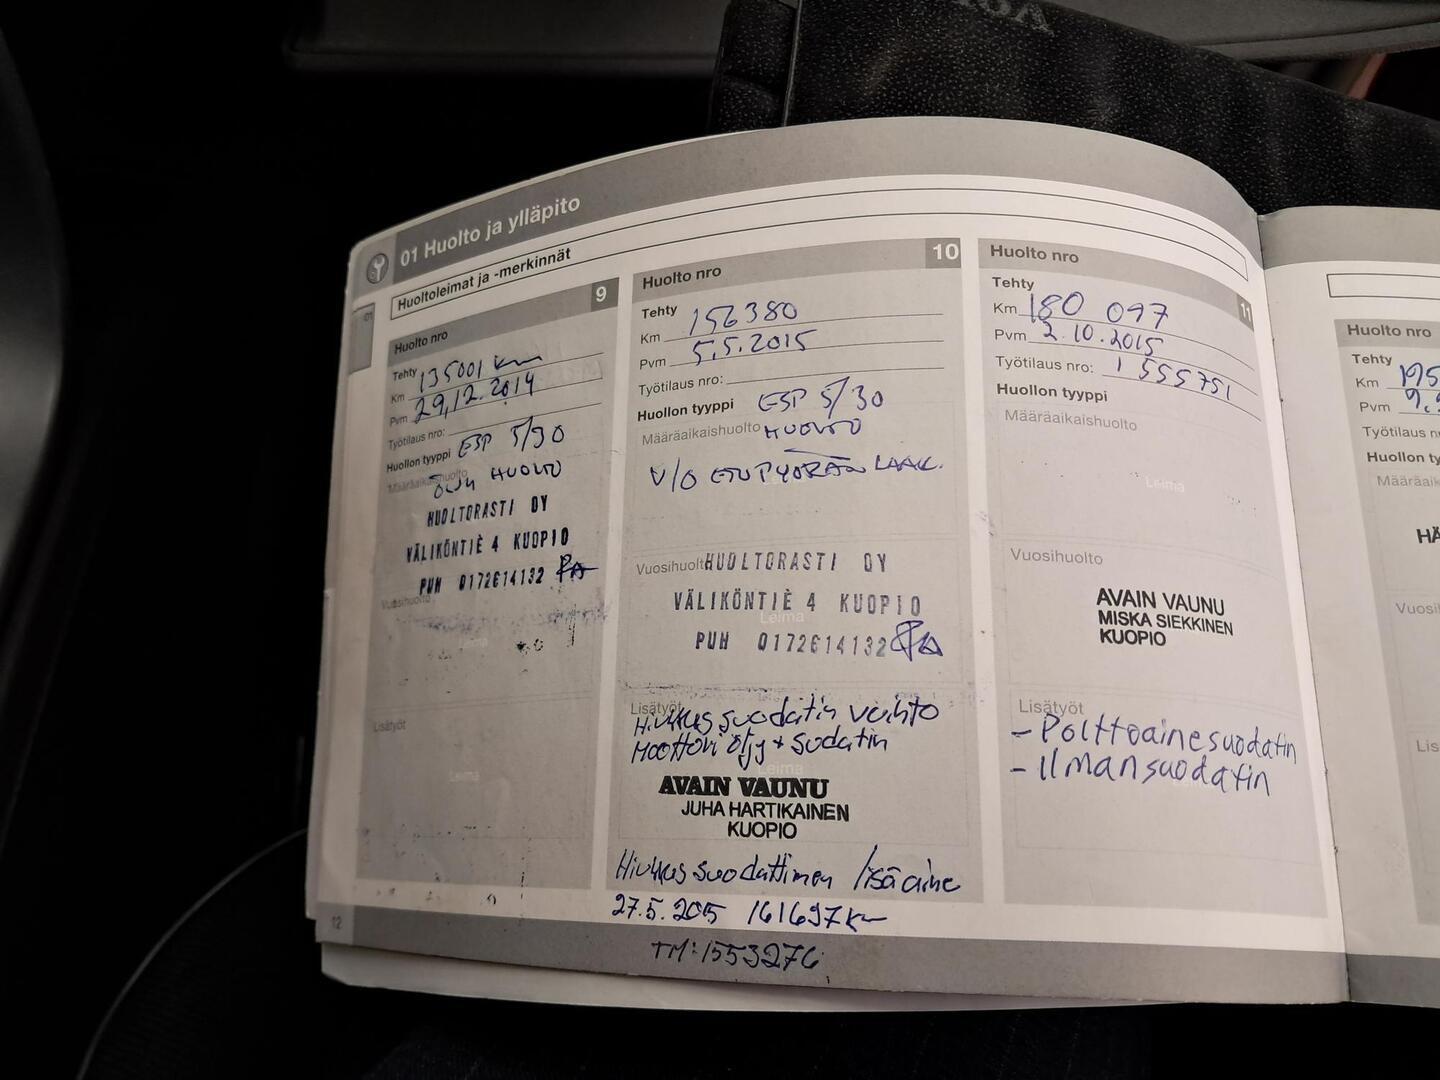 01 Huolto ja ylläpito
Huoltoleimat ja -merkinnät
01
Huolto nro 9
Tehty
Km 135001 km
Pvm 29.12.2014
Työtilaus nro:
Huollon tyyppi ESP 5/30
Määräaikaishuolto
ÖLJY HUOLTO
HUOLTORASTI OY
VÄLIKÖNTIE 4 KUOPIO
PUH 0172614132
Vuosihuolto
Leima
Lisätyöt
Leima
12
Huolto nro 10
Tehty
Km 156380
Pvm 5.5.2015
Työtilaus nro:
Huollon tyyppi ESP 5/30
Määräaikaishuolto HUOLTO
V/O ETUPYÖRÄN LAAK.
Vuosihuolto
HUOLTORASTI OY
VÄLIKÖNTIE 4 KUOPIO
Leima
PUH 0172614132
Lisätyöt
Hiukkassuodatin vaihto
Moottori öljy + sudatin
Leima
AVAIN VAUNU
JUHA HARTIKAINEN
KUOPIO
Hiukkassuodattimen lisäaine
27.5.2015 161697km
TM:1553276
Huolto nro 11
Tehty
Km 180 097
Pvm 2.10.2015
Työtilaus nro: 1555751
Huollon tyyppi
Määräaikaishuolto
Leima
Vuosihuolto
AVAIN VAUNU
MISKA SIEKKINEN
KUOPIO
Lisätyöt
- Polttoainesuodatin
- Ilmansuodatin
Huolto nro
Tehty
Km 195
Pvm 9.
Työtilaus n
Huollon ty
Määräaik
HÄ
Vuosi
Lis